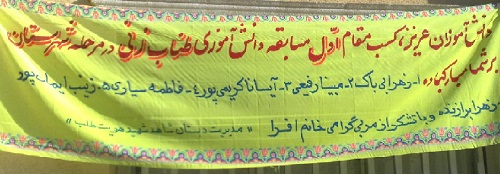 دانش آموزان عزیز، کسب مقام اول مسابقه دانش آموزی طناب زنی در مرحله شهرستان
بر شما مبارکباد ۱- زهرا بی باک ۲- مبینا رفیعی ۳- آیسانا کریمی پور ۴- فاطمه سیاری ۵- زینب ایمان پور
زهرا برازنده و با تشکر از مربی گرامی خانم افرا « مدیریت دبستان شاهد شهید هویت طلب »